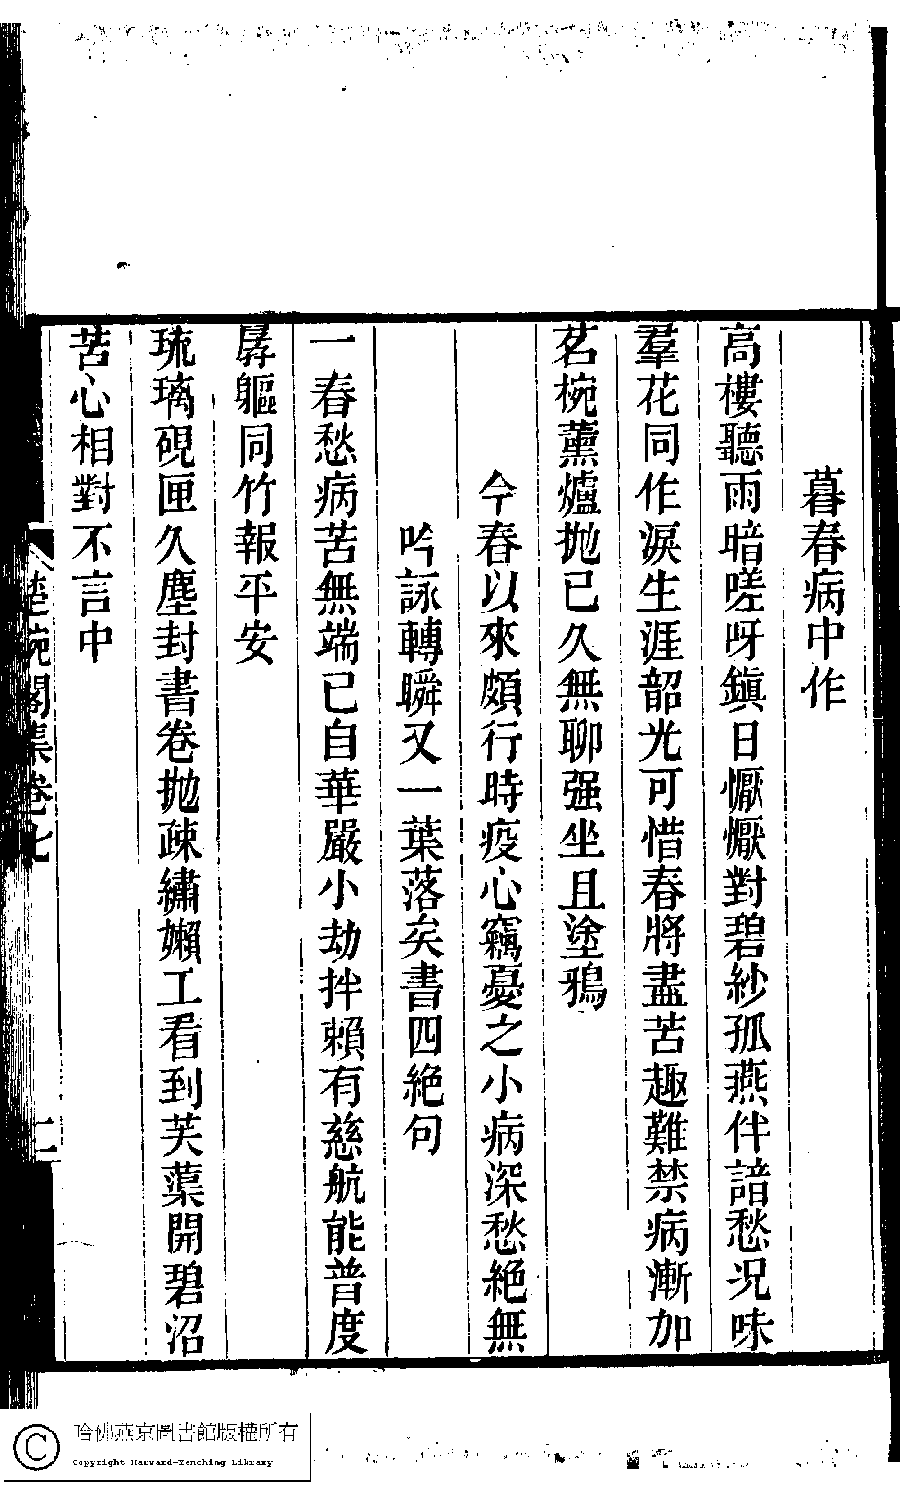 暮春病中作
高樓聽雨暗嗟呀鎮日懨懨對碧紗孤燕伴諳愁况味
羣花同作淚生涯韶光可惜春將盡苦趣難禁病漸加
茗椀薰爐抛已久無聊强坐且塗鴉
今春以來頗行時疫心竊憂之小病深愁絕無
吟詠轉瞬又一葉落矣書四絕句
一春愁病苦無端已自華嚴小劫拌賴有慈航能普度
孱軀同竹報平安
琉璃硯匣久塵封書卷抛疎繡嬾工看到芙蕖開碧沼
苦心相對不言中
閣集卷七
哈佛燕京圖書館版權所有
Copyright Harvard-Yenching Library